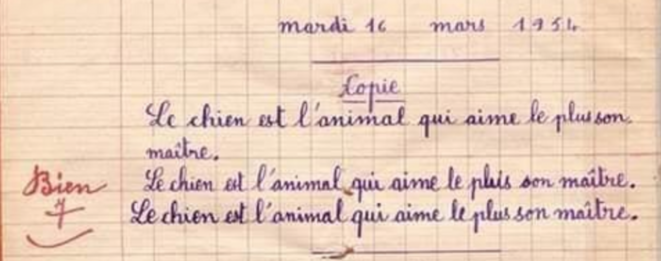 mardi 16 mars 1954
Copie
Le chien est l'animal qui aime le plus son
maître.
Bien
7
Le chien est l'animal qui aime le pluis son maître.
Le chien est l'animal qui aime le plus son maître.